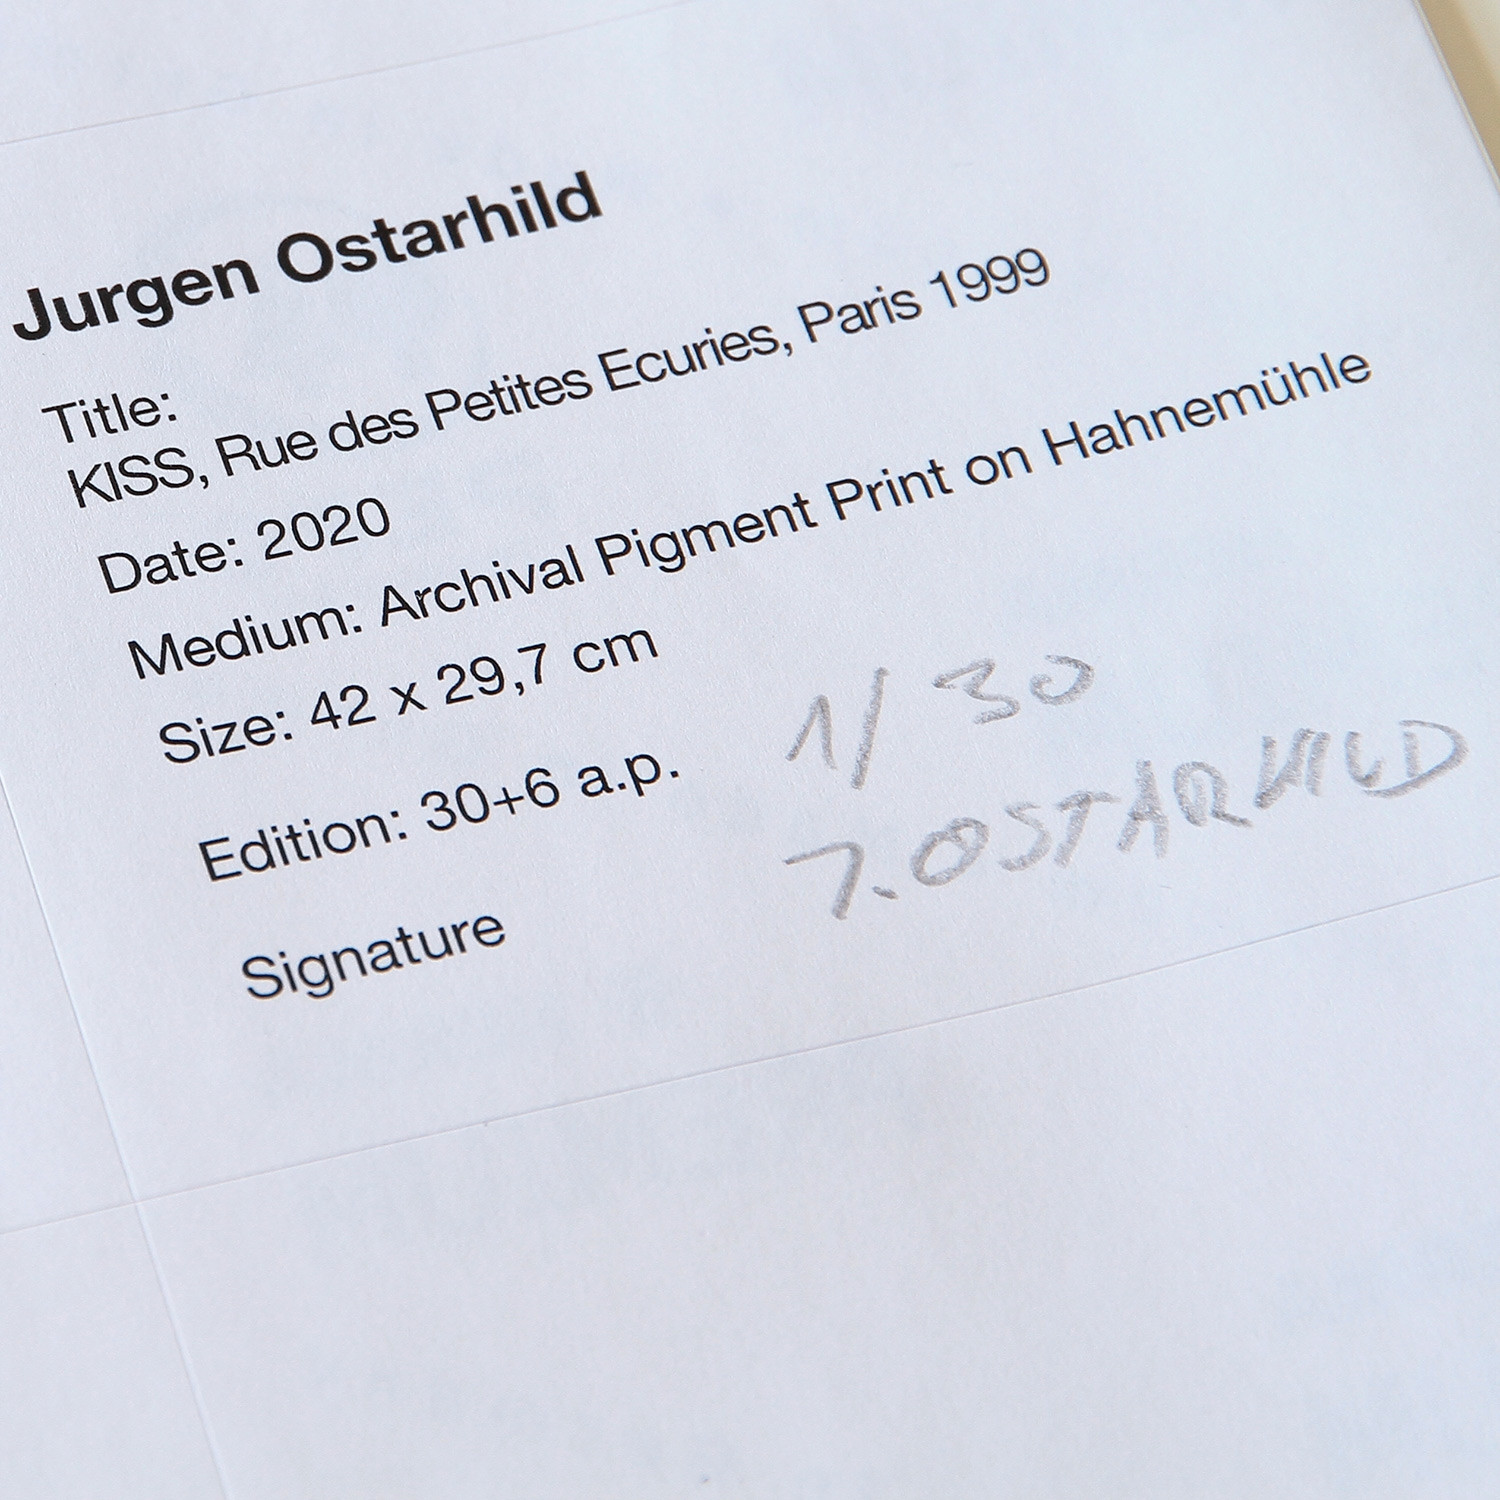 Jurgen Ostarhild
Title:
KISS, Rue des Petites Ecuries, Paris 1999
Date: 2020
Medium: Archival Pigment Print on Hahnemühle
Size: 42 x 29,7 cm
Edition: 30+6 a.p. 1/30
Signature J. OSTARHILD